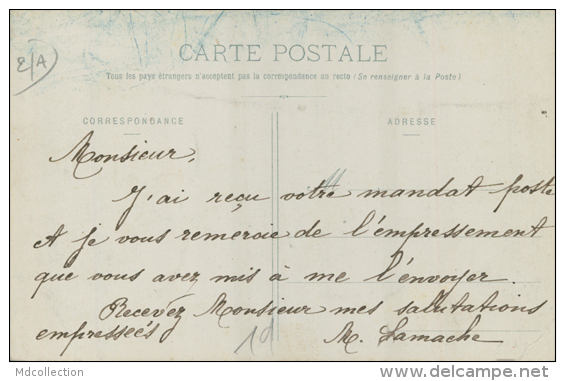 E/A
CARTE POSTALE
Tous les pays étrangers n'acceptent pas la correspondance au recto (Se renseigner à la Poste)
CORRESPONDANCE
ADRESSE
Monsieur,
J'ai reçu votre mandat-poste
et je vous remercie de l'empressement
que vous avez mis à me l'envoyer.
Recevez Monsieur mes salutations
empressées
M. Lamache
10
Mdcollection
delcampe.net